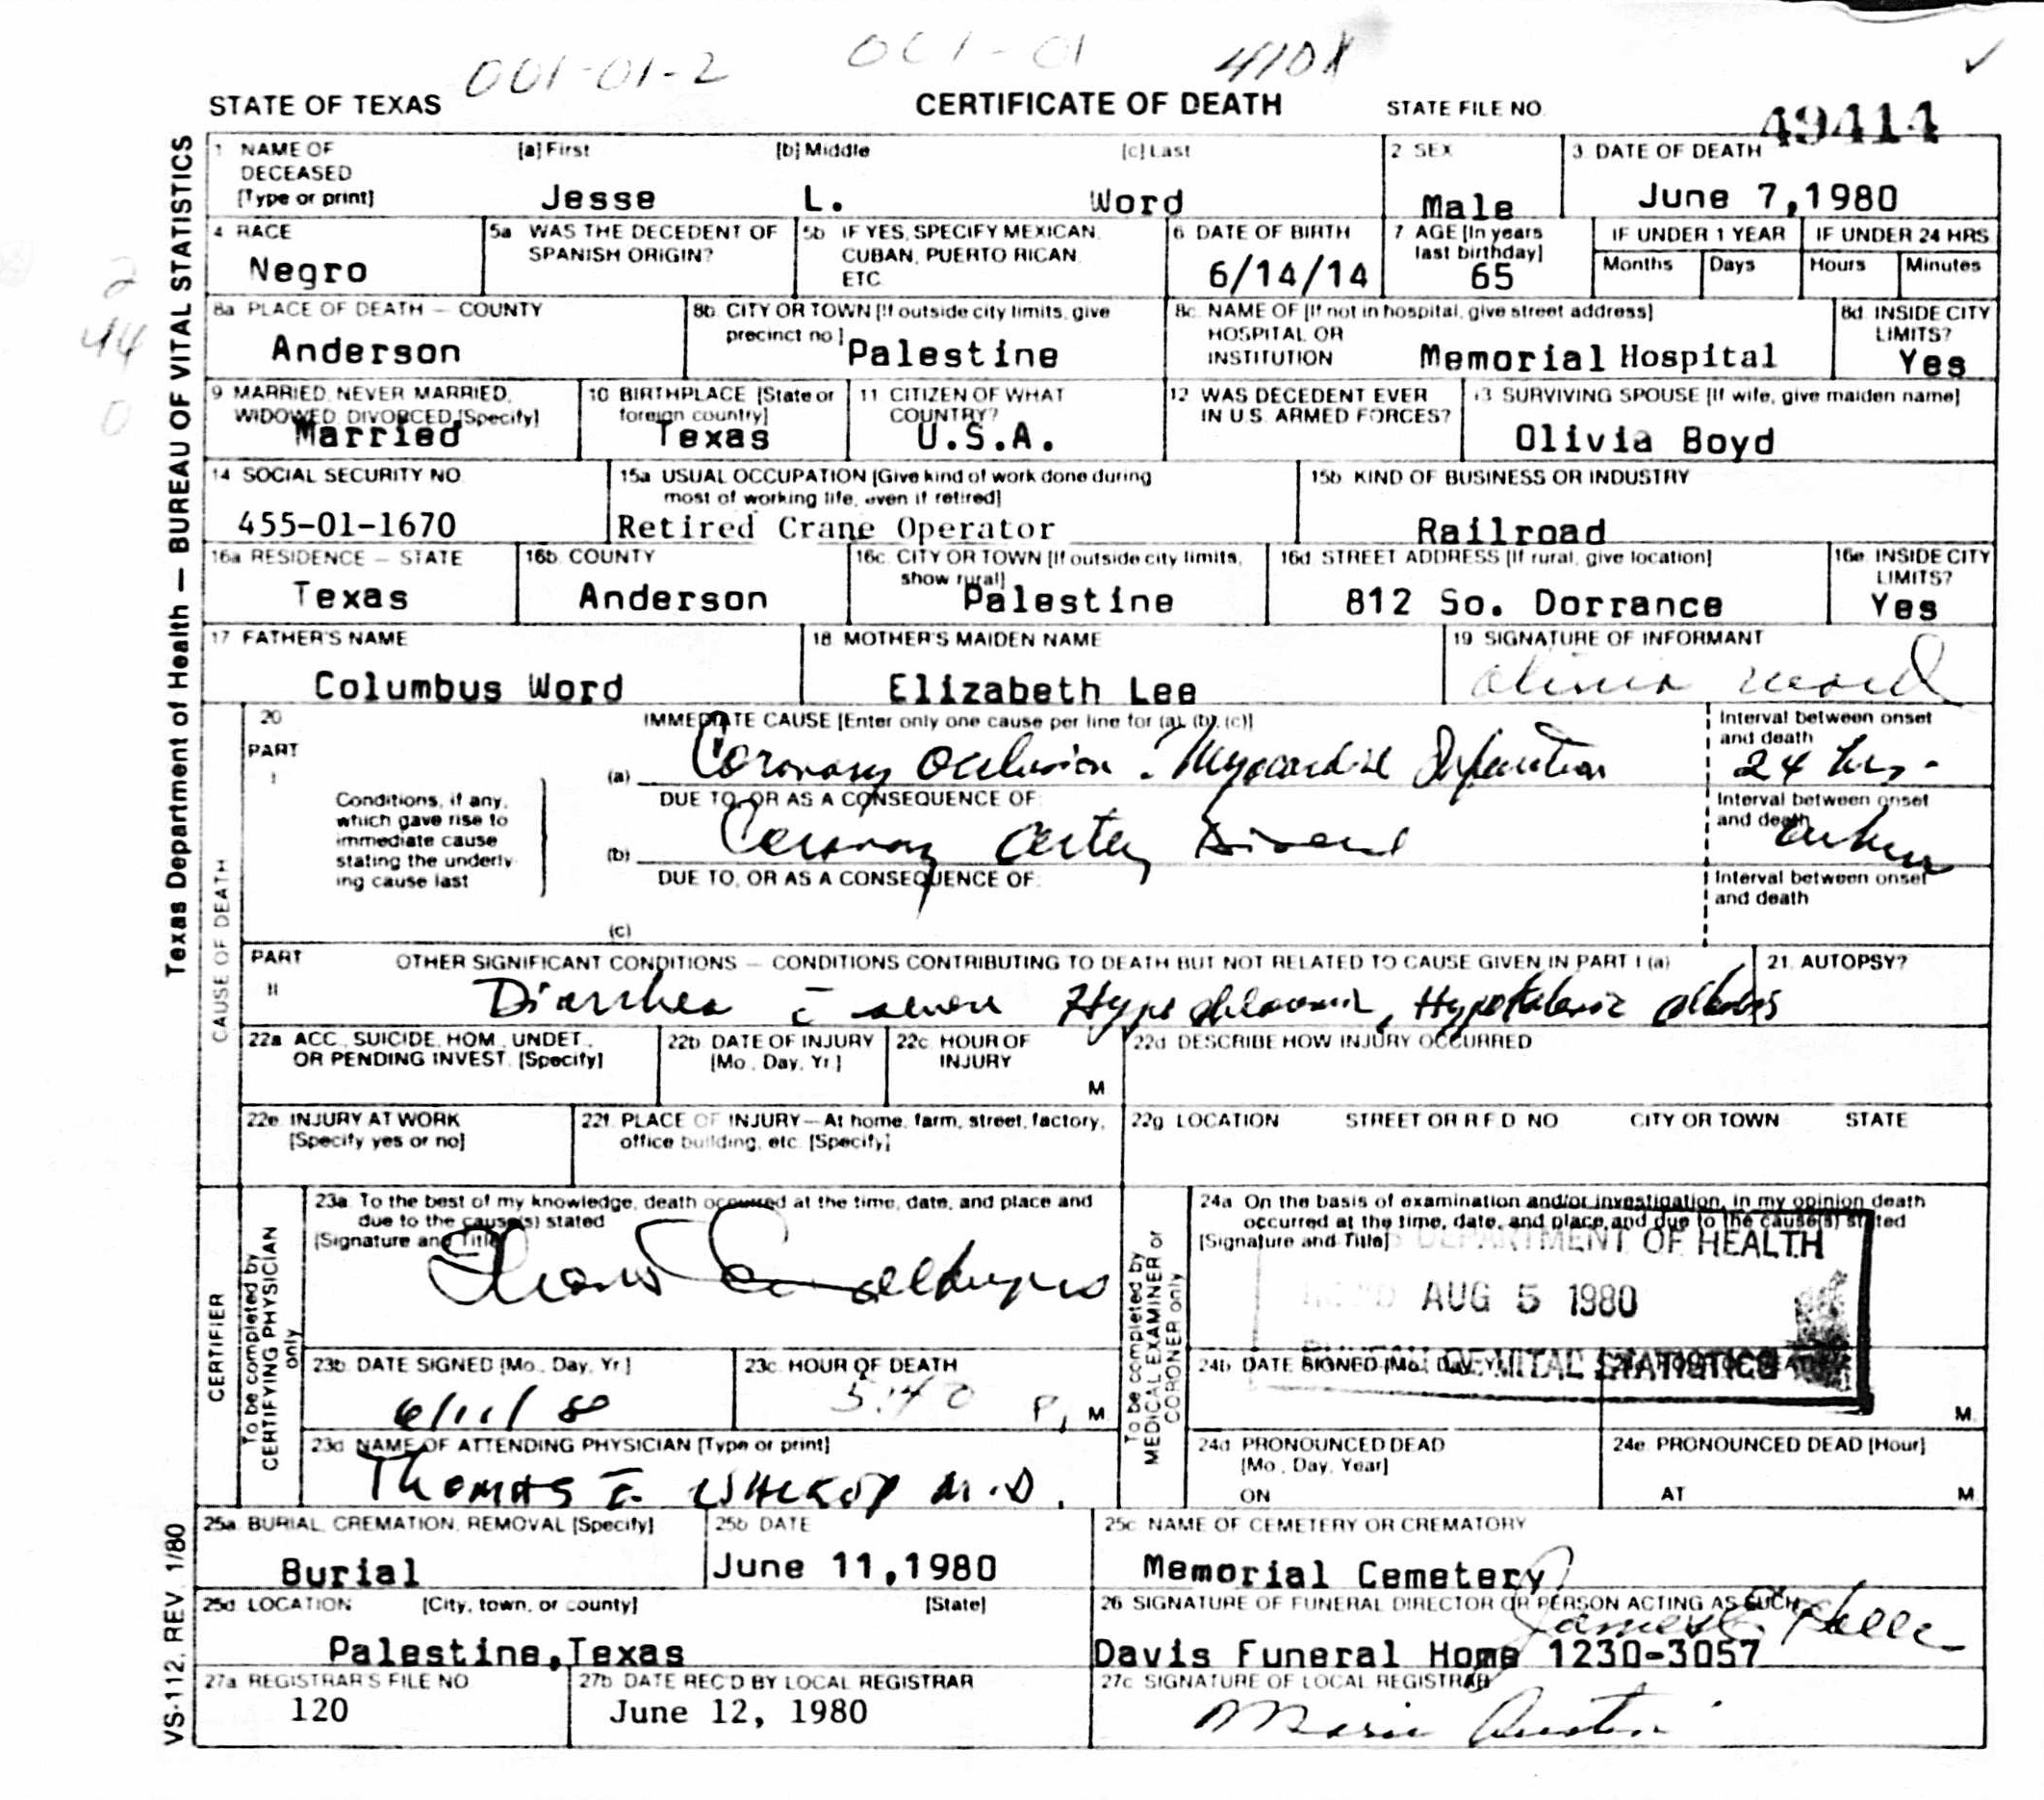 001-01-2 001-01 410X
STATE OF TEXAS CERTIFICATE OF DEATH STATE FILE NO. 49414
Texas Department of Health — BUREAU OF VITAL STATISTICS
1 NAME OF DECEASED [Type or print] [a] First [b] Middle [c] Last 2 SEX 3. DATE OF DEATH
Jesse L. Word Male June 7,1980
4 RACE 5a WAS THE DECEDENT OF SPANISH ORIGIN? 5b IF YES, SPECIFY MEXICAN, CUBAN, PUERTO RICAN, ETC. 6 DATE OF BIRTH 7 AGE [In years last birthday] IF UNDER 1 YEAR IF UNDER 24 HRS.
Months Days Hours Minutes
Negro 6/14/14 65
2
44
0
8a PLACE OF DEATH — COUNTY 8b. CITY OR TOWN [If outside city limits, give precinct no.] 8c. NAME OF [If not in hospital, give street address] HOSPITAL OR INSTITUTION 8d. INSIDE CITY LIMITS?
Anderson Palestine Memorial Hospital Yes
9 MARRIED, NEVER MARRIED, WIDOWED, DIVORCED [Specify] 10 BIRTHPLACE [State or foreign country] 11 CITIZEN OF WHAT COUNTRY? 12 WAS DECEDENT EVER IN U.S. ARMED FORCES? 13 SURVIVING SPOUSE [If wife, give maiden name]
Married Texas U.S.A. Olivia Boyd
14 SOCIAL SECURITY NO. 15a USUAL OCCUPATION [Give kind of work done during most of working life, even if retired] 15b KIND OF BUSINESS OR INDUSTRY
455-01-1670 Retired Crane Operator Railroad
16a RESIDENCE — STATE 16b COUNTY 16c. CITY OR TOWN [If outside city limits, show rural] 16d STREET ADDRESS [If rural, give location] 16e. INSIDE CITY LIMITS?
Texas Anderson Palestine 812 So. Dorrance Yes
17 FATHER'S NAME 18 MOTHER'S MAIDEN NAME 19 SIGNATURE OF INFORMANT
Columbus Word Elizabeth Lee Olivia Word
CAUSE OF DEATH
20 PART I IMMEDIATE CAUSE [Enter only one cause per line for (a), (b), (c)] Interval between onset and death
(a) Coronary Occlusion Myocardial Infarction 24 hrs.
Conditions, if any, which gave rise to immediate cause stating the underlying cause last
DUE TO, OR AS A CONSEQUENCE OF: Interval between onset and death
(b) Coronary Artery Disease
DUE TO, OR AS A CONSEQUENCE OF: Interval between onset and death
(c)
PART II OTHER SIGNIFICANT CONDITIONS — CONDITIONS CONTRIBUTING TO DEATH BUT NOT RELATED TO CAUSE GIVEN IN PART I (a) 21. AUTOPSY?
Diarrhea c̄ severe Hypochloremic, Hypokalemic alkalosis
22a ACC., SUICIDE, HOM., UNDET., OR PENDING INVEST. [Specify] 22b DATE OF INJURY [Mo., Day, Yr.] 22c HOUR OF INJURY M 22d DESCRIBE HOW INJURY OCCURRED
22e. INJURY AT WORK [Specify yes or no] 22f. PLACE OF INJURY — At home, farm, street, factory, office building, etc. [Specify] 22g LOCATION STREET OR R.F.D. NO. CITY OR TOWN STATE
CERTIFIER
To be completed by CERTIFYING PHYSICIAN only
23a To the best of my knowledge, death occurred at the time, date, and place and due to the cause(s) stated
[Signature and Title]
To be completed by MEDICAL EXAMINER or CORONER only
24a On the basis of examination and/or investigation, in my opinion death occurred at the time, date, and place, and due to the cause(s) stated
[Signature and Title]
DEPARTMENT OF HEALTH
AUG 5 1980
BUREAU OF VITAL STATISTICS
23b DATE SIGNED [Mo., Day, Yr.] 23c HOUR OF DEATH 24b DATE SIGNED [Mo., Day, Yr.]
6/11/80 5:40 P. M M.
23d NAME OF ATTENDING PHYSICIAN [Type or print] 24d PRONOUNCED DEAD [Mo., Day, Year] 24e. PRONOUNCED DEAD [Hour]
Thomas M.D. ON AT M
25a. BURIAL, CREMATION, REMOVAL [Specify] 25b DATE 25c NAME OF CEMETERY OR CREMATORY
Burial June 11,1980 Memorial Cemetery
25d LOCATION [City, town, or county] [State] 26 SIGNATURE OF FUNERAL DIRECTOR OR PERSON ACTING AS SUCH
Palestine,Texas Davis Funeral Home 1230-3057 James
27a REGISTRAR'S FILE NO 27b DATE REC'D BY LOCAL REGISTRAR 27c SIGNATURE OF LOCAL REGISTRAR
120 June 12, 1980 Marie Austin
VS-112, REV. 1/80